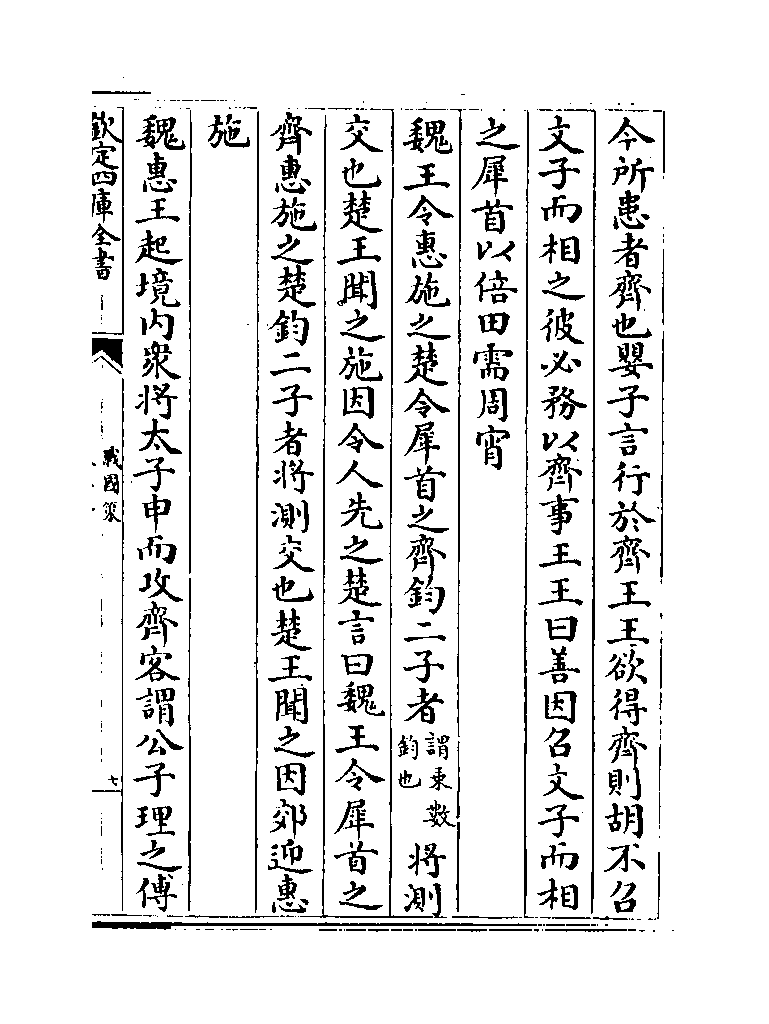 今所患者齊也嬰子言行於齊王王欲得齊則胡不召
文子而相之彼必務以齊事王王曰善因召文子而相
之犀首以倍田需周宵
魏王令惠施之楚令犀首之齊鈞二子者謂車數鈞也將測
交也楚王聞之施因令人先之楚言曰魏王令犀首之
齊惠施之楚鈞二子者將測交也楚王聞之因郊迎惠
施
魏惠王起境内衆將太子申而攻齊客謂公子理之傅
欽定四庫全書
戰國策
七